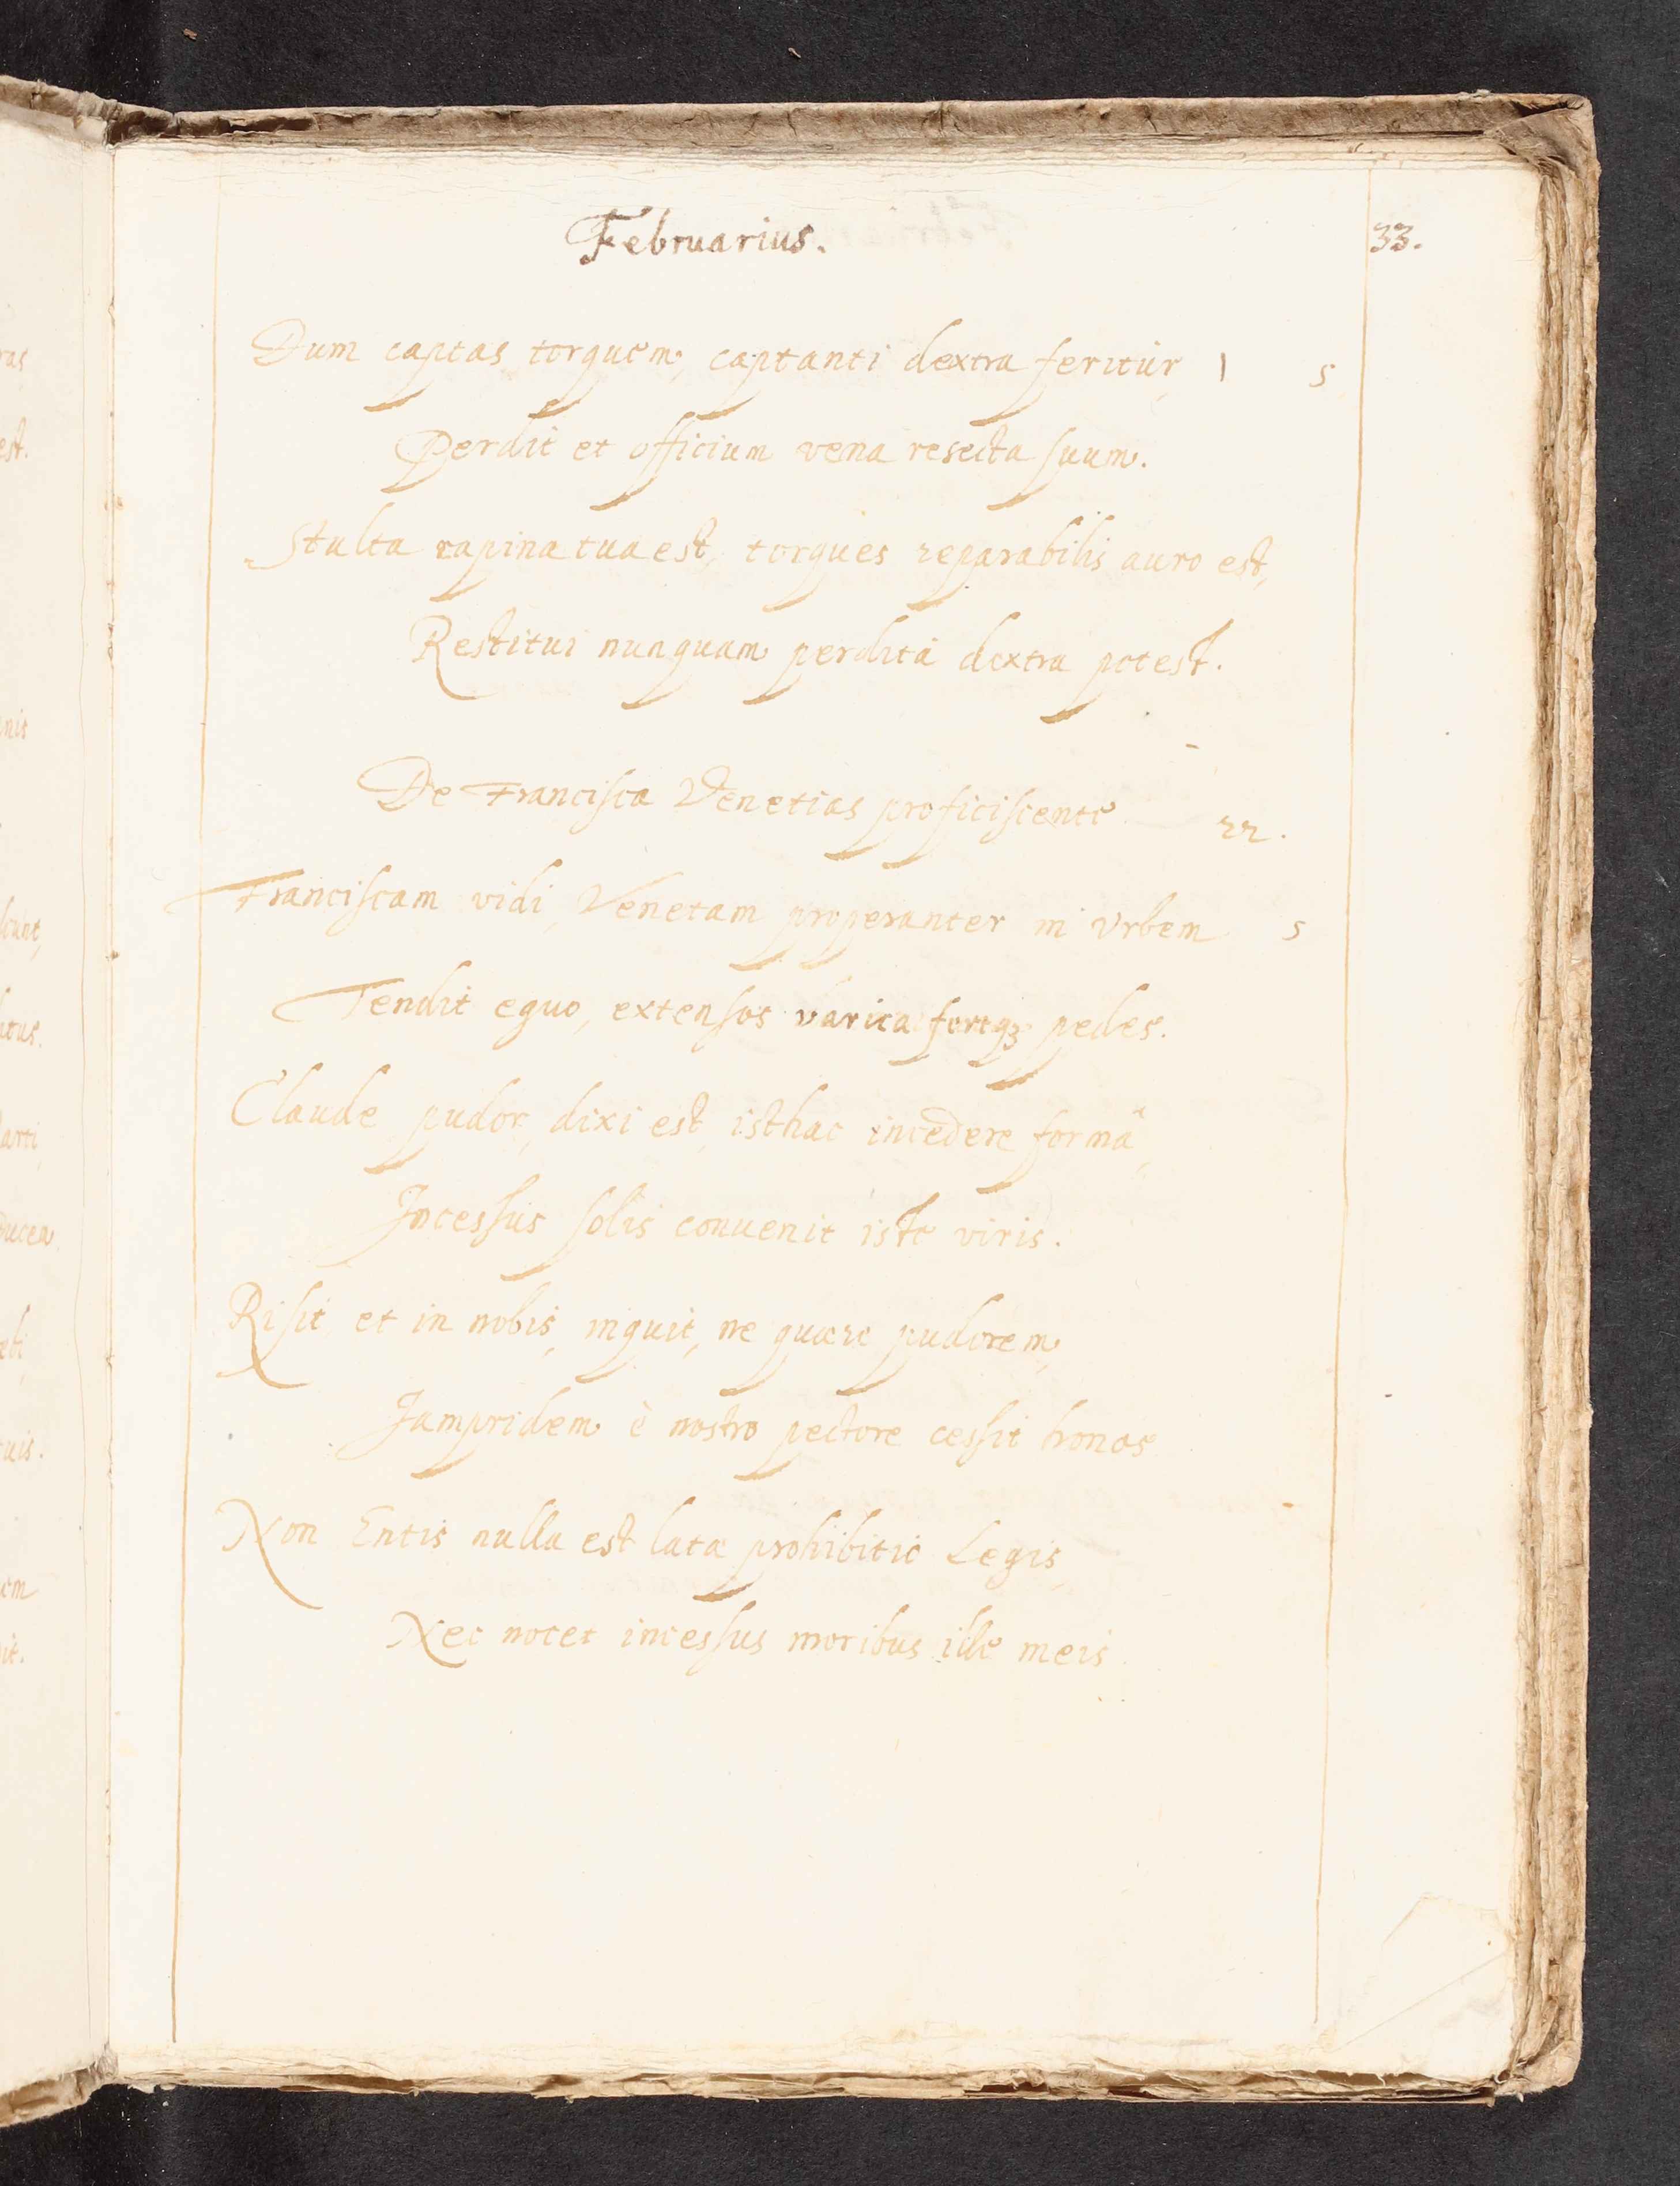 Februarius. 33.
Dum captas torquem, captanti dextra feritur, 1 5
Perdit et officium vena resecta suum.
Stulta rapina tua est, torques reparabilis auro est,
Restitui nunquam perdita dextra potest.
De Francisca Venetias proficiscente 22.
Franciscam vidi, Venetam properanter in Vrbem 5
Tendit equo, extensos varica fertqꝫ pedes.
Claude pudor, dixi est, isthac incedere formâ,
Incessus solis conuenit iste viris.
Risit, et in nobis, inquit, ne quære pudorem,
Jampridem è nostro pectore cessit honos
Non Entis nulla est lata prohibitio Legis
Nec nocet incessus moribus ille meis
ras
est.
nis
scunt,
atus.
arti
Ducem
ebi
tuis.
uem
it.